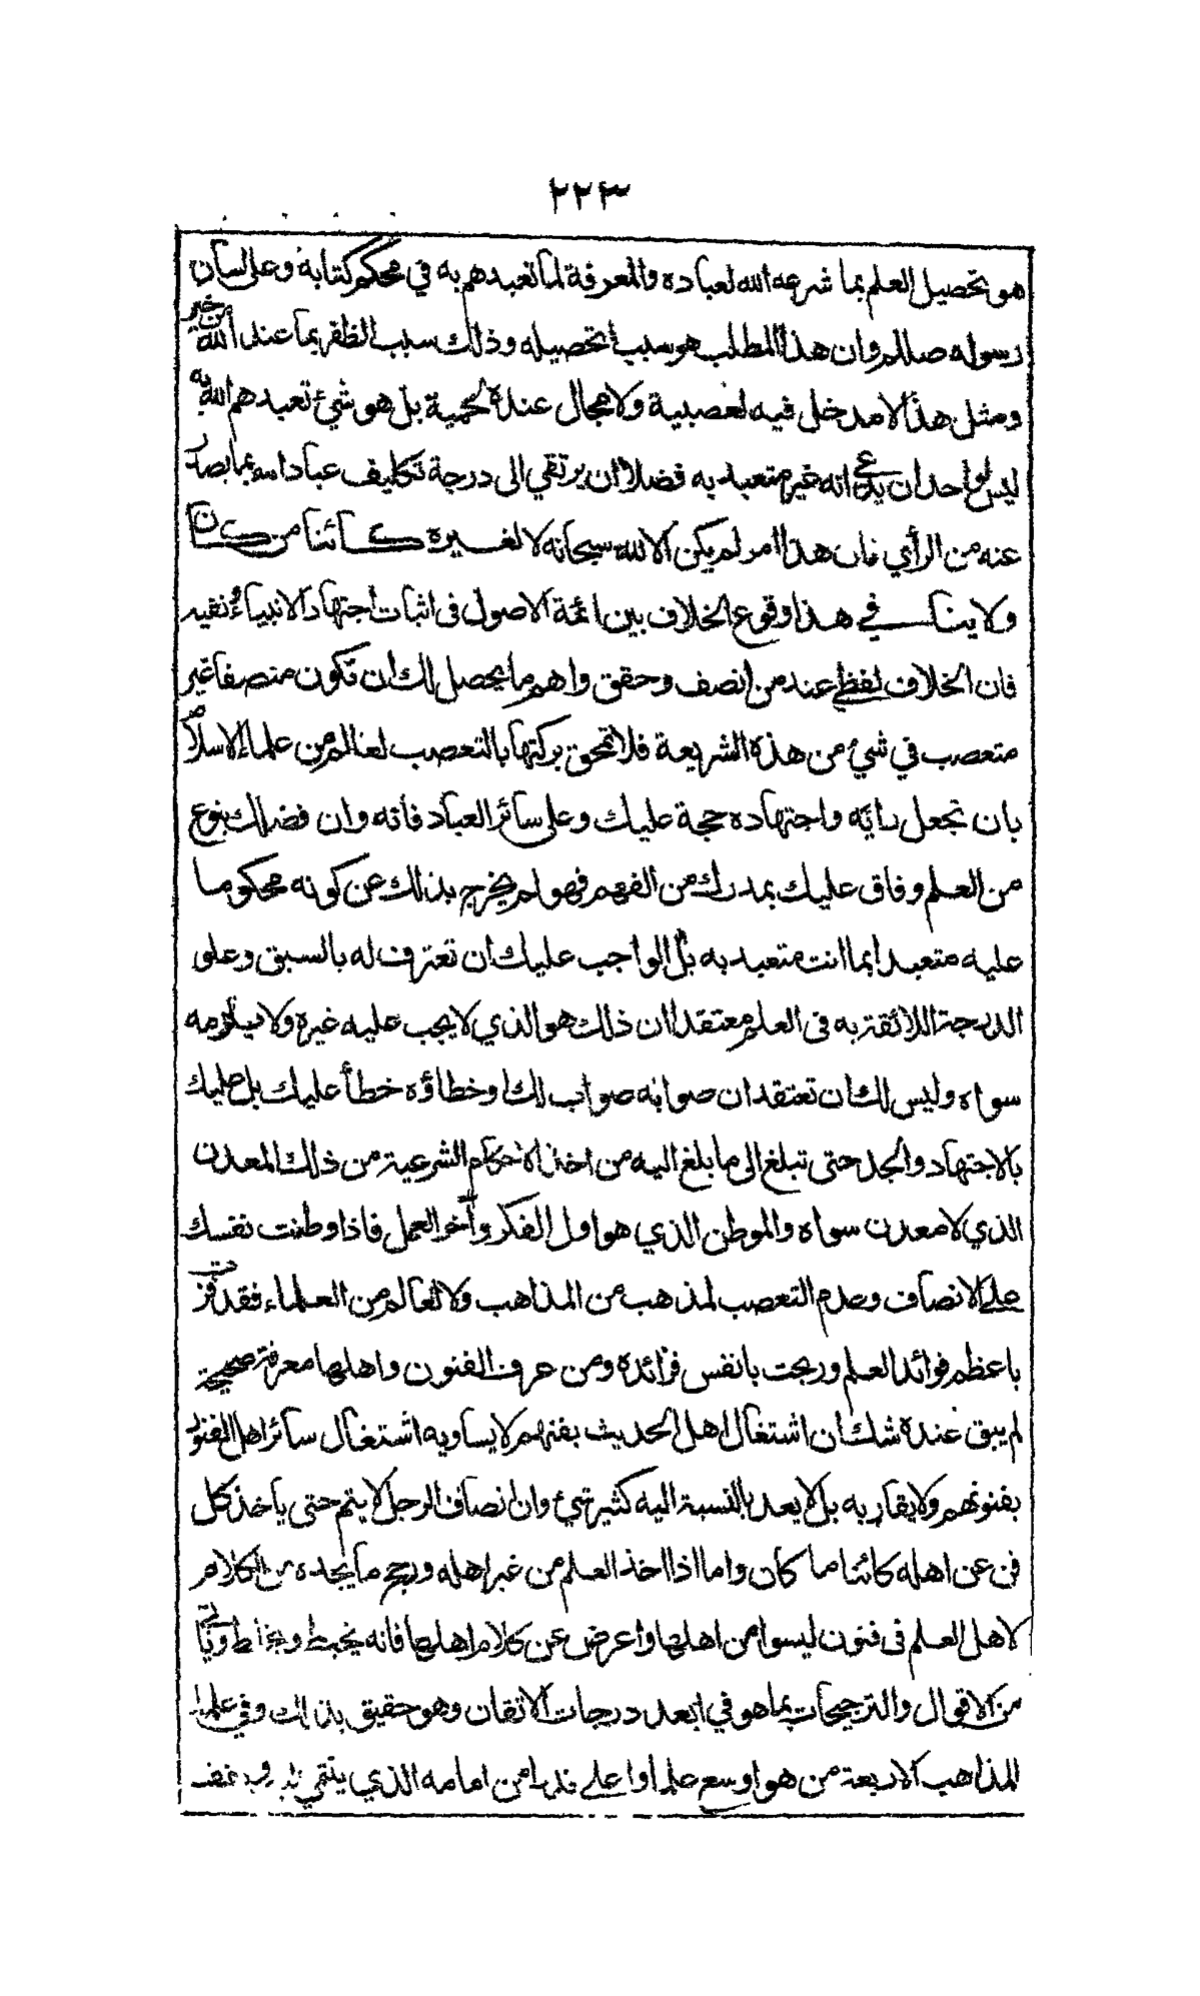 ٢٢٣
هو تحصيل العلم بما شرعه الله لعباده والمعرفة لما تعبدهم به في محكم كتابه وعلى لسان
رسوله صللم وان هذا المطلب هو سبب تحصيله وذلك سبب الظفر بما عند الله من خير
ومثل هذا لا مدخل فيه لعصبية ولا مجال عنده لحمية بل هو شيء تعبدهم الله به
ليس لواحد ان يدعي انه غير متعبد به فضلا ان يرتقي الى درجة تكليف عباد الله بما يصدر
عنه من الرأي فان هذا امر لم يكن الا لله سبحانه لا لغيره كائنا من كان
ولا ينافي هذا وقوع الخلاف بين ائمة الاصول فى اثبات اجتهاد الانبياء ونفيه
فان الخلاف لفظي عند من انصف وحقق واهم ما يحصل لك ان تكون منصفا غير
متعصب في شيء من هذه الشريعة فلا تمحق بركتها بالتعصب لعالم من علماء الاسلام
بان تجعل رايه واجتهاده حجة عليك وعلى سائر العباد فانه وان فضلك بنوع
من العلم وفاق عليك بمدرك من الفهم فهو لم يخرج بذلك عن كونه محكوما
عليه متعبدا بما انت متعبد به بل الواجب عليك ان تعترف له بالسبق وعلو
الدرجة اللائقة به فى العلم معتقدا ان ذلك هو الذي لا يجب عليه غيره ولا يلزمه
سواه وليس لك ان تعتقد ان صوابه صواب لك وخطاؤه خطأ عليك بل عليك
بالاجتهاد والجد حتى تبلغ الى ما بلغ اليه من اخذ الاحكام الشرعية من ذلك المعدن
الذي لا معدن سواه والموطن الذي هو اول الفكر وآخر العمل فاذا وطنت نفسك
على الانصاف وعدم التعصب لمذهب من المذاهب ولا لعالم من العلماء فقد فزت
باعظم فوائد العلم وربحت بانفس فرائده ومن عرف الفنون واهلها معرفة صحيحة
لم يبق عنده شك ان اشتغال اهل الحديث بفنهم لا يساويه اشتغال سائر اهل الفنون
بفنونهم ولا يقاربه بل لا يعد بالنسبة اليه كثير شيء وان انصاف الرجل لا يتم حتى ياخذ كل
فن عن اهله كائنا ما كان واما اذا اخذ العلم من غير اهله ورجح ما يجده من الكلام
لاهل العلم فى فنون ليسوا من اهلها واعرض عن كلام اهلها فانه يخبط ويخلط وياتي
من الاقوال والترجيحات بما هو في ابعد درجات الاتقان وهو حقيق بذلك وفي علماء
المذاهب الاربعة من هو اوسع علما واعلى قدرا من امامه الذي ينتمي